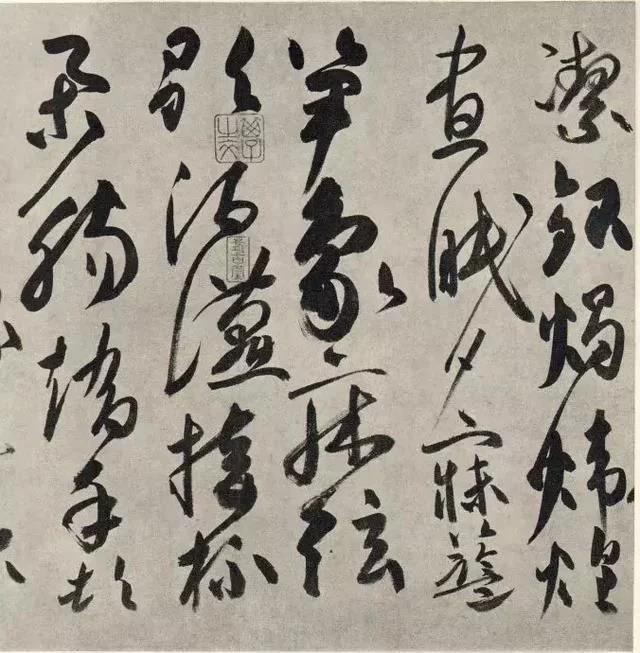 潔銀燭煒煌
晝眠夕寐藍
笋象床弦
歌酒讌接杯
舉觴矯手頓